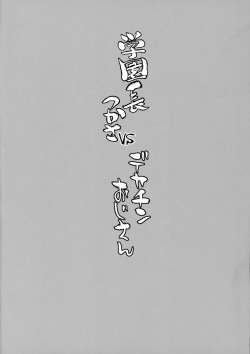 学園長
つかさvs
デカチン
おじさん